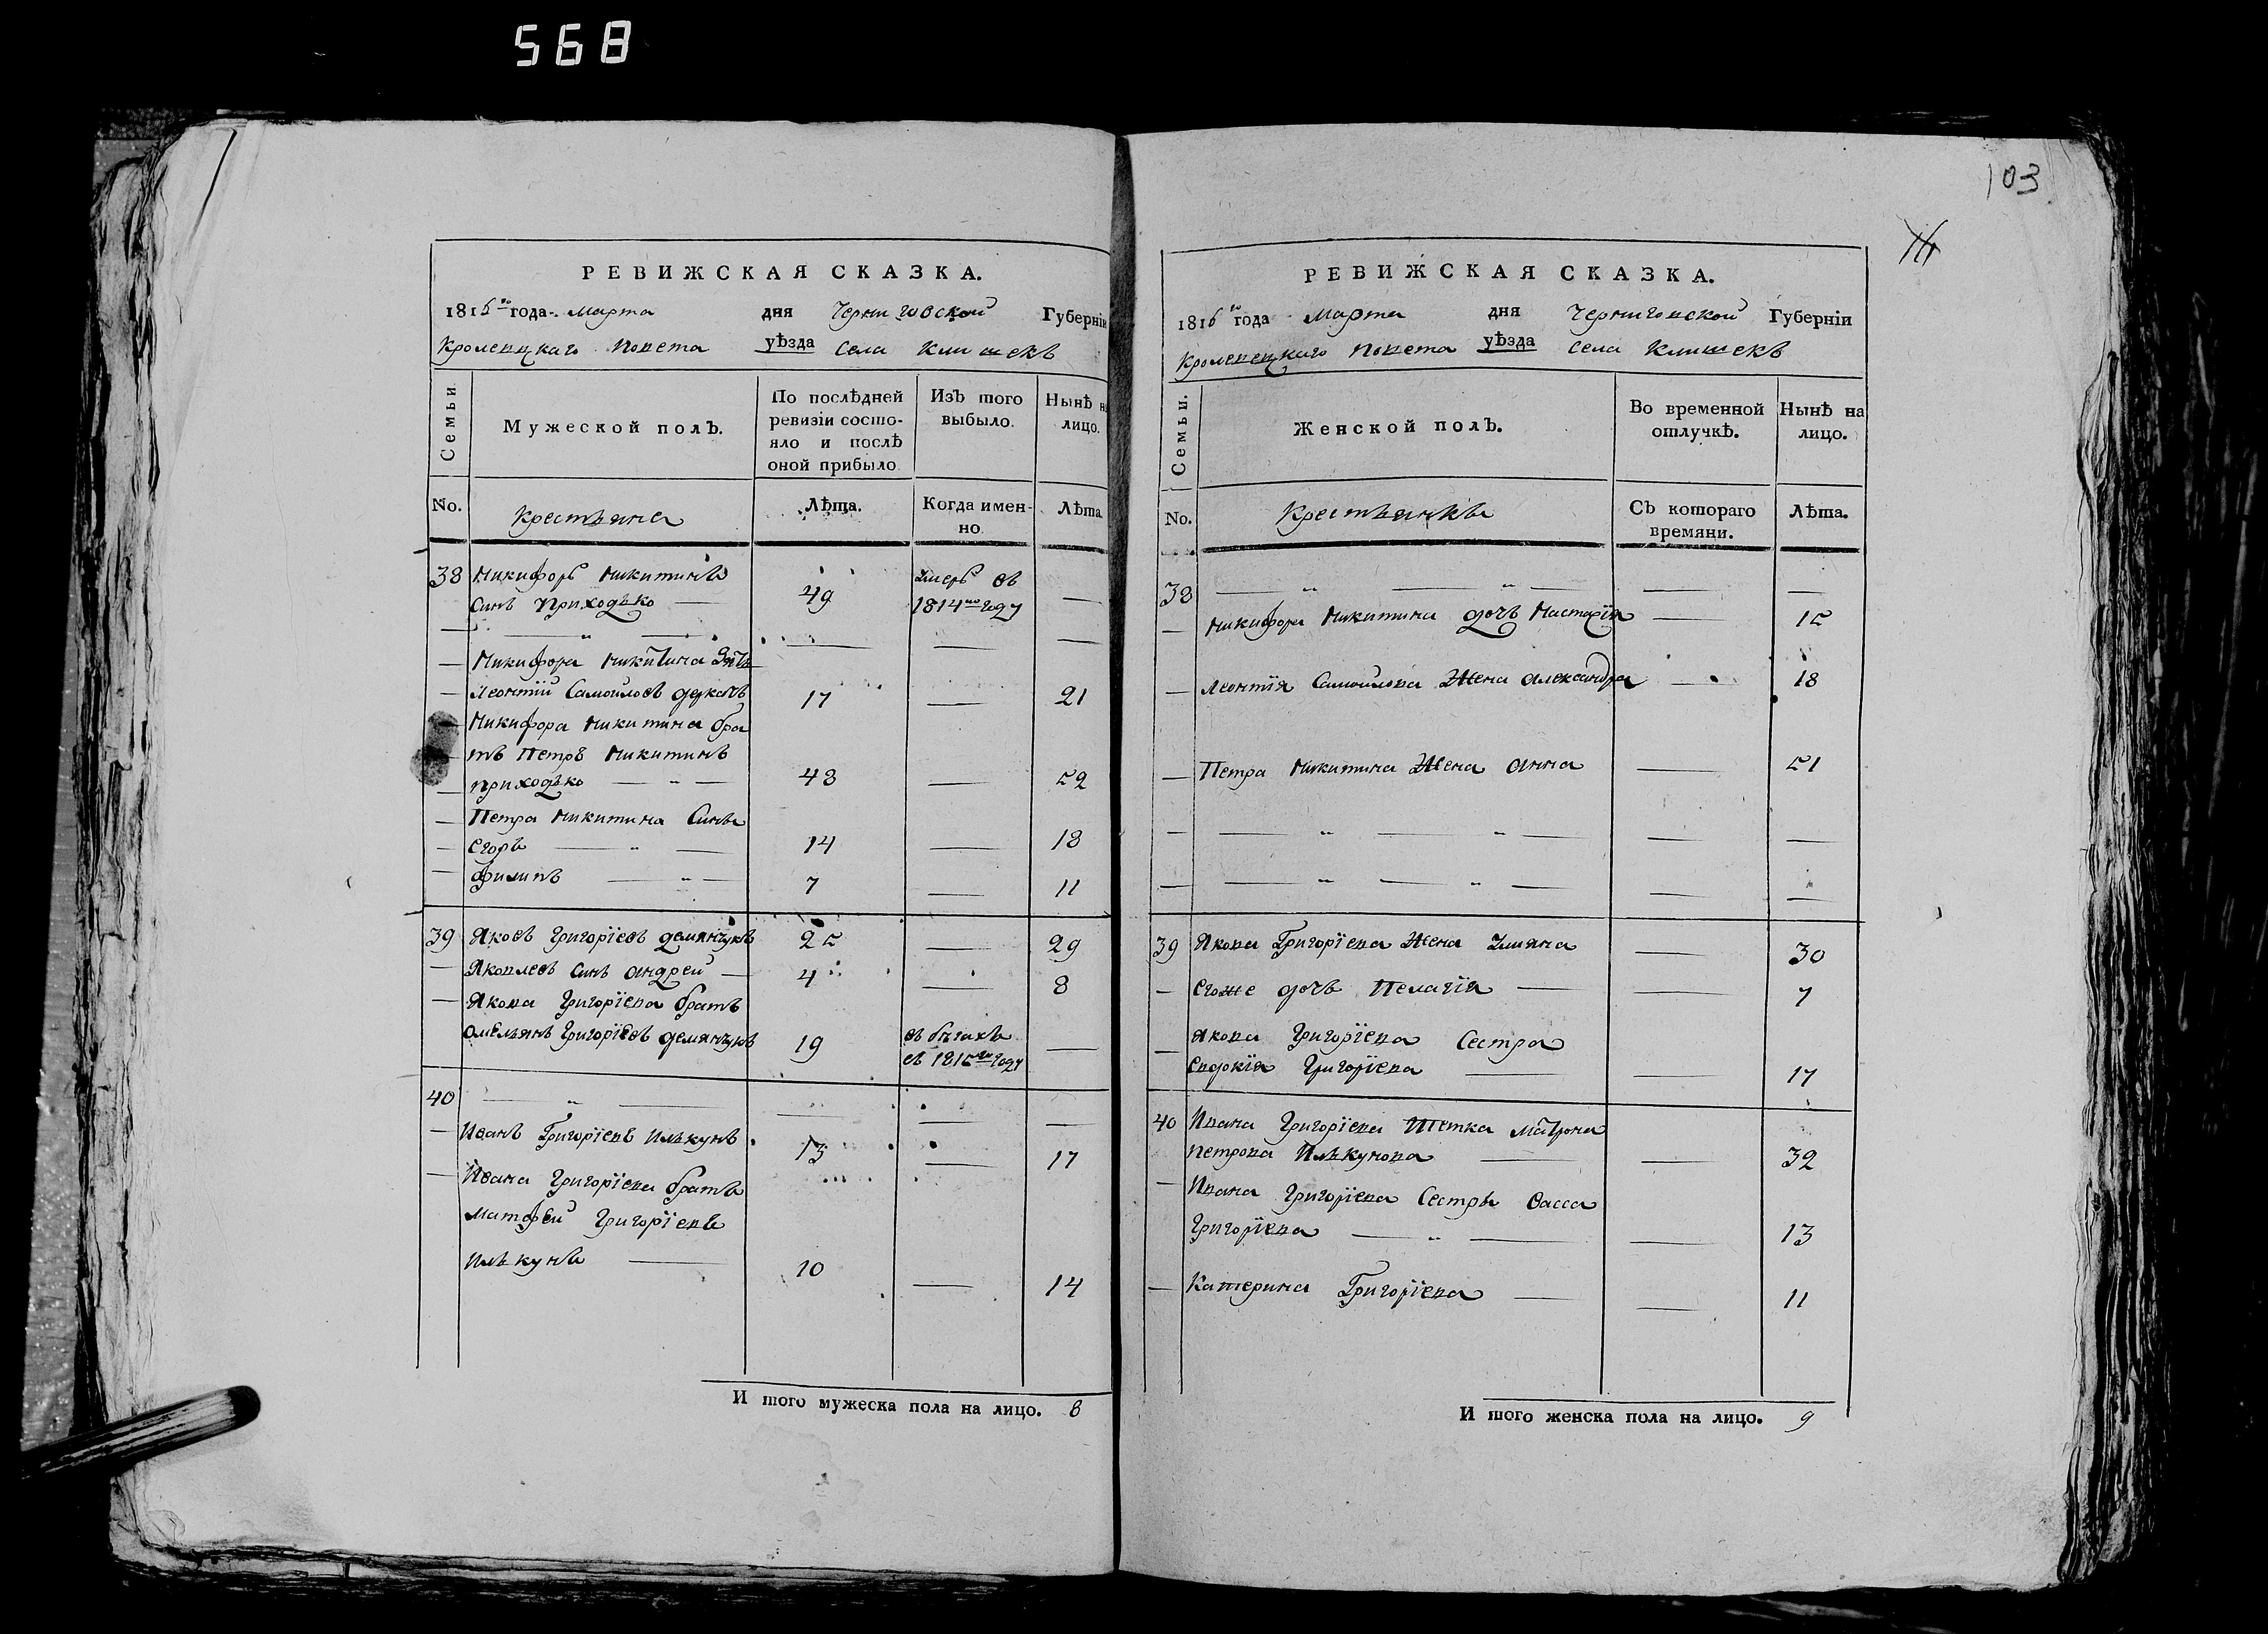 568
103
РЕВИЖСКАЯ СКАЗКА.
1816го года Марта дня Черниговской Губерніи
Кролевецкаго Повета уѣзда Села Клишекъ
Семьи
Мужеской полъ.
По послѣдней ревизіи состояло и послѣ оной прибыло.
Изъ того выбыло.
Нынѣ на лицо.
No.
Крестьяне
Лѣта.
Когда именно
Лѣта.
38 Никифоръ Никитинъ умеръ въ
Синъ Приходько — 49 1814мъ году —
— — „ — — — —
— Никифора Никитина Зять
— Леонтій Самойловъ деркачъ 17 — 21
— Никифора Никитина бра
— тъ Петръ Никитинъ
— приходько — „ — 48 — 52
— Петра Никитина Сины
— Егоръ — „ — 14 — 18
— Филипъ — „ — 7 — 11
39 Яковъ Григоріевъ демянчукъ 25 — 29
— Яковлевъ Синъ Андрей — 4 — 8
— Якова Григоріева братъ
Омельянъ Григоріевъ демянчукъ 19 въ бѣгахъ —
въ 1815мъ году
40 — „ — — — —
— Иванъ Григоріевъ Илькунъ 13 — 17
— Ивана Григоріева братъ
Матфей Григоріевъ
Илькунъ — 10 — 14
И того мужеска пола на лицо. 8
РЕВИЖСКАЯ СКАЗКА.
1816го года Марта дня Черниговской Губерніи
Кролевецкаго Повета уѣзда Села Клишекъ
Семьи.
Женской полъ.
Во временной отлучкѣ.
Нынѣ на лицо.
No.
Крестьянки
Съ котораго времяни.
Лѣта.
38 — „ — „ — — —
— Никифора Никитина дочь Настасія — 15
— Леонтія Самойлова Жена Александра — 18
— Петра Никитина Жена Анна — 51
— — „ — „ — — —
— — „ — „ — — —
39 Якова Григоріева Жена Уляна — 30
— Егоже дочь Пелагія — — 7
— Якова Григоріева Сестра
Евдокія Григоріева — — 17
40 Ивана Григоріева Тетка Матрона
Петрова Илькунова — — 32
— Ивана Григоріева Сестры Васса
Григоріева — „ — — 13
— Катерина Григоріева — — 11
И того женска пола на лицо. 9